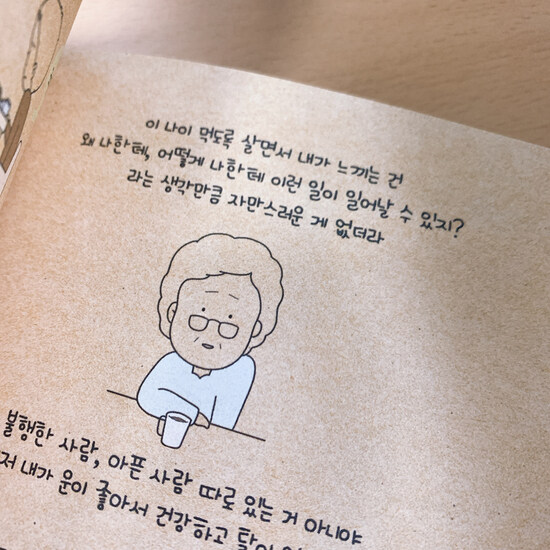 이 나이 먹도록 살면서 내가 느끼는 건
왜 나한테, 어떻게 나한테 이런 일이 일어날 수 있지?
라는 생각만큼 자만스러운 게 없더라
불행한 사람, 아픈 사람 따로 있는 거 아니야
내가 운이 좋아서 건강하고